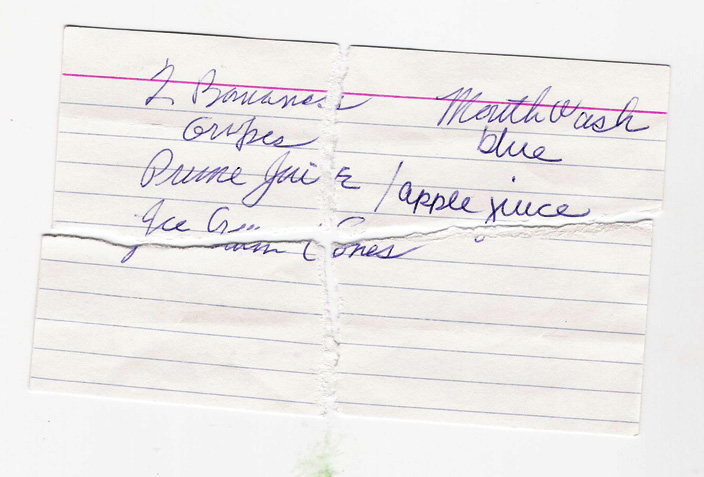 2 Bananas
Grapes
Prune Juice / apple juice
Ice Cream Cones
Mouthwash
blue